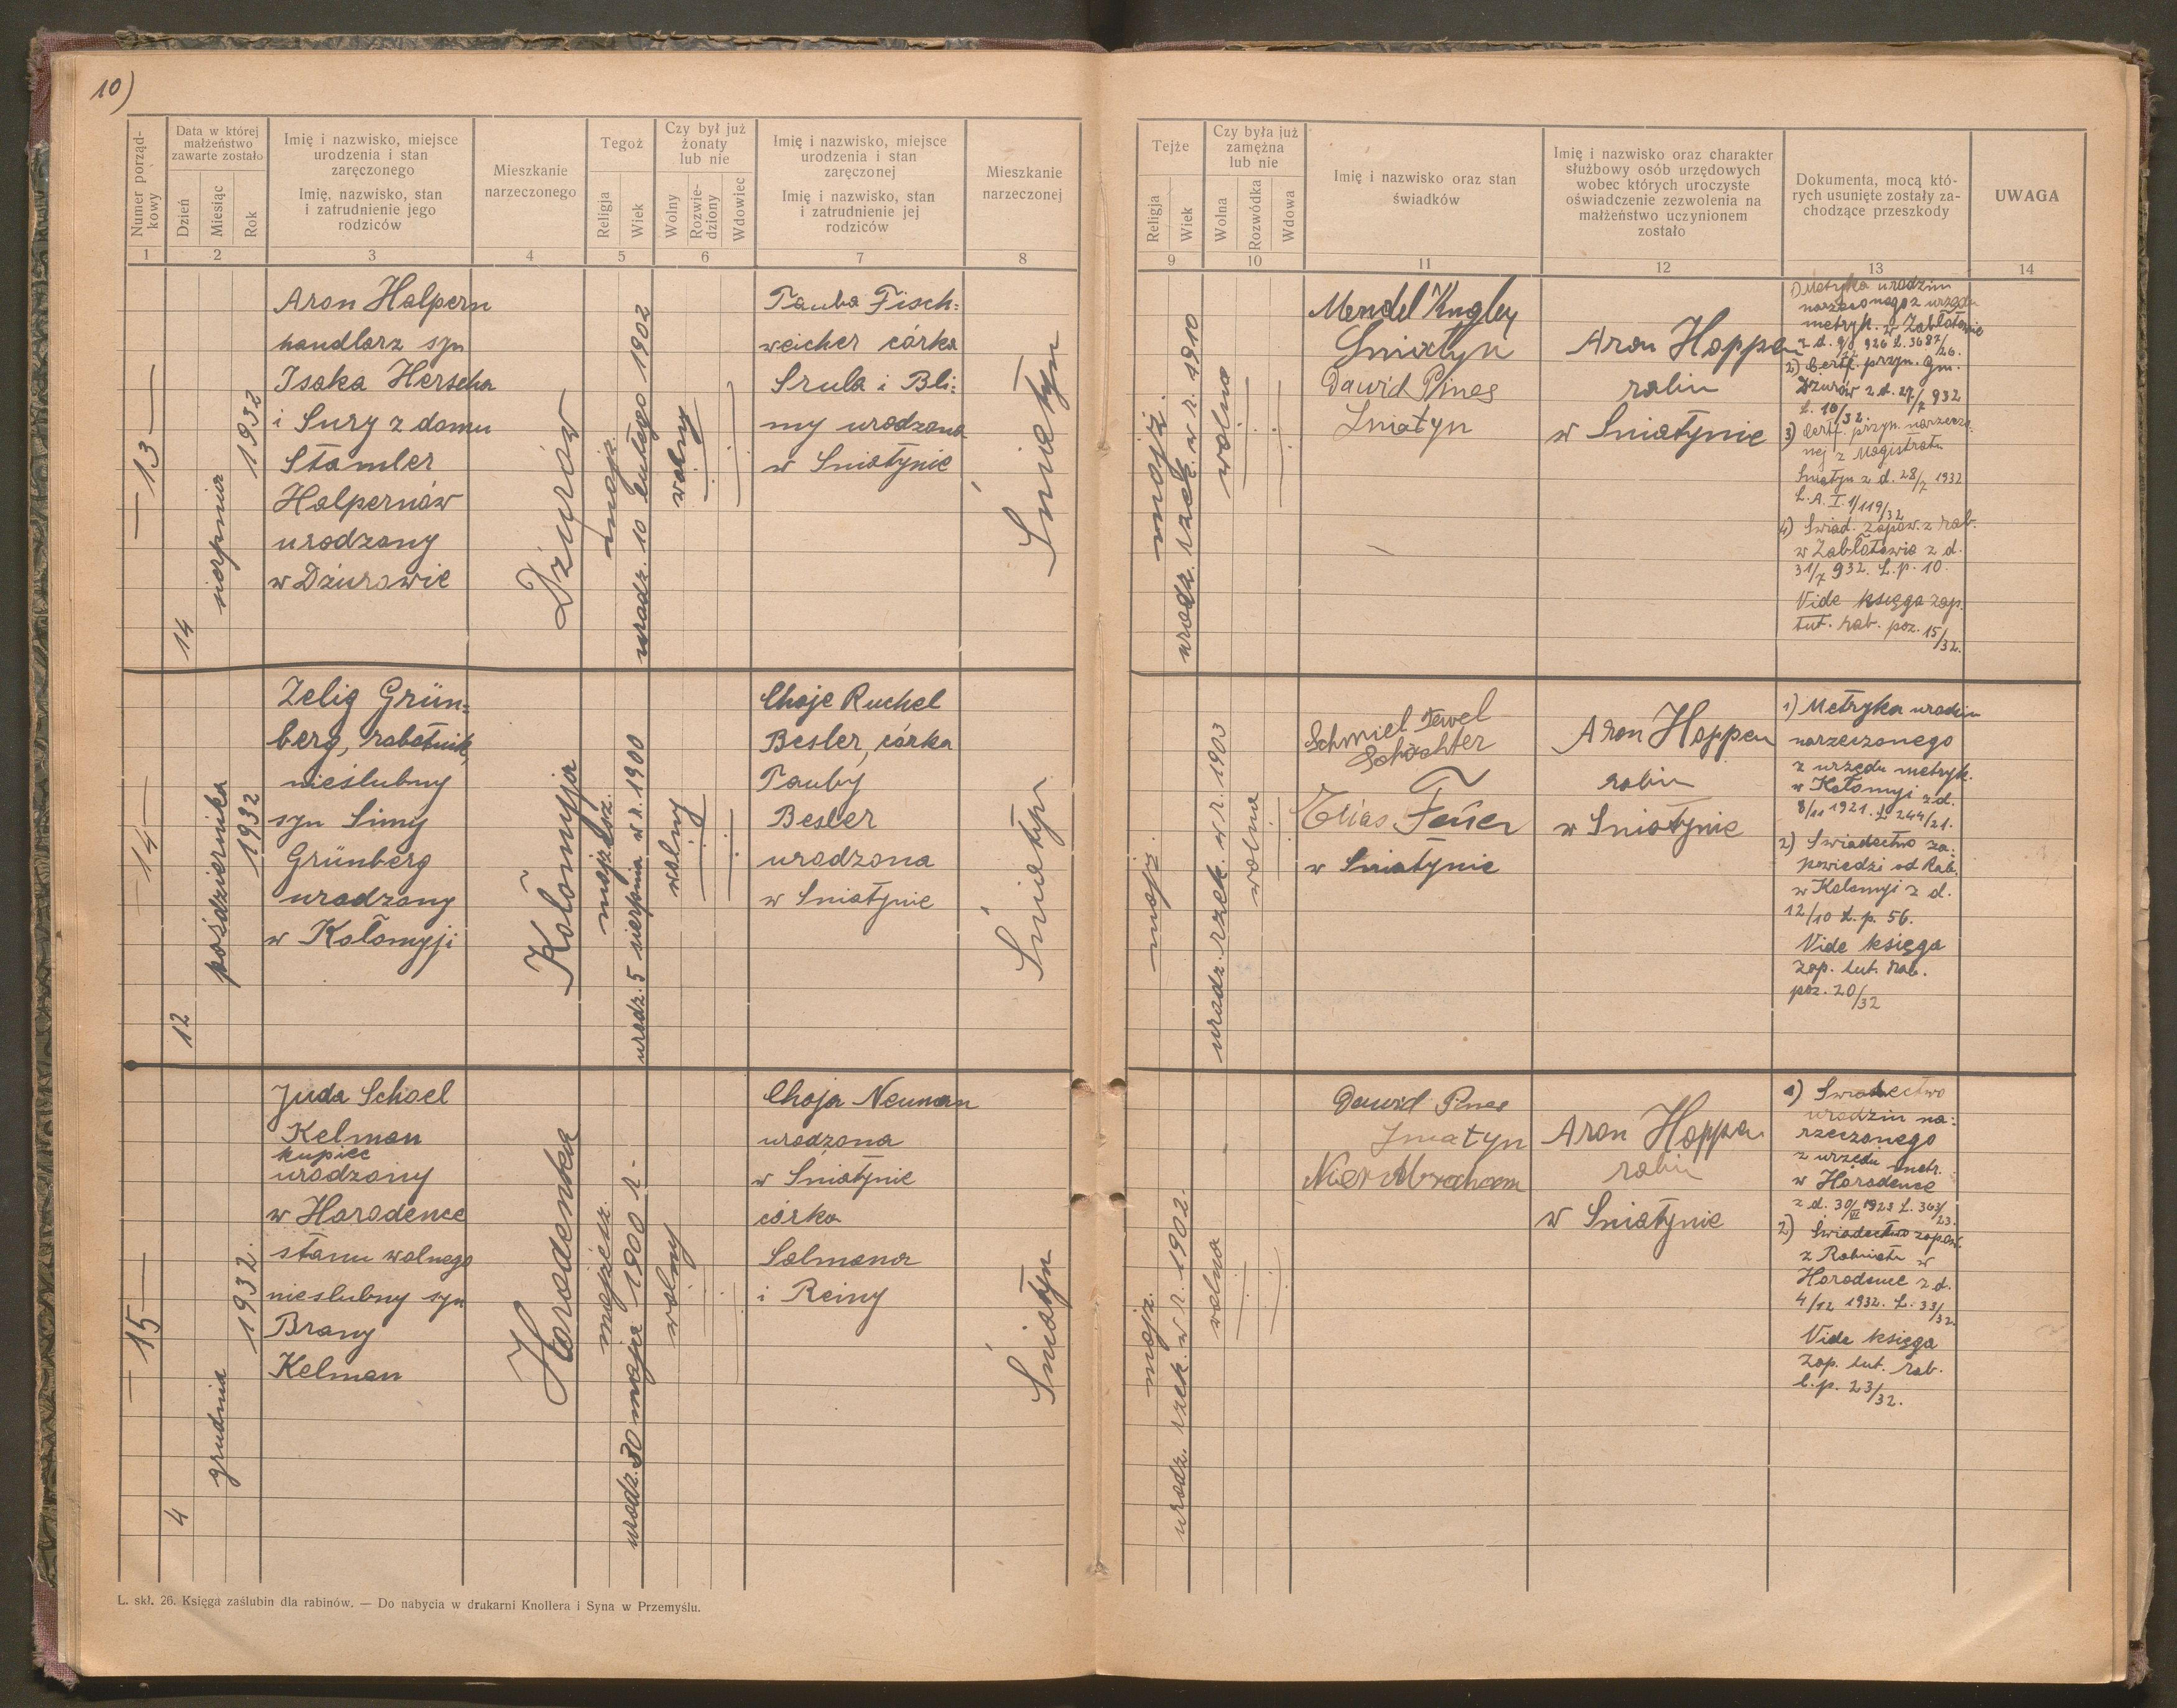 10)
Numer porząd-
kowy
Data w której
małżeństwo
zawarte zostało
Dzień
Miesiąc
Rok
Imię i nazwisko, miejsce
urodzenia i stan
zaręczonego
Imię, nazwisko, stan
i zatrudnienie jego
rodziców
Mieszkanie
narzeczonego
Tegoż
Religja
Wiek
Czy był już
żonaty
lub nie
Wolny
Rozwie-
dziony
Wdowiec
Imię i nazwisko, miejsce
urodzenia i stan
zaręczonej
Imię i nazwisko, stan
i zatrudnienie jej
rodziców
Mieszkanie
narzeczonej
1 2 3 4 5 6 7 8
Tejże
Religja
Wiek
Czy była już
zamężna
lub nie
Wolna
Rozwódka
Wdowa
Imię i nazwisko oraz stan
świadków
Imię i nazwisko oraz charakter
służbowy osób urzędowych
wobec których uroczyste
oświadczenie zezwolenia na
małżeństwo uczynionem
zostało
Dokumenta, mocą któ-
rych usunięte zostały za-
chodzące przeszkody
UWAGA
9 10 11 12 13 14
— 13 —
14
sierpnia
1932
Aron Halpern
handlarz syn
Isaka Herscha
i Sury z domu
Stamler
Halpernów
urodzony
w Dżurowie
Dżurów
mojż.
urodz. 10 lutego 1902
wolny
Tauba Fisch=
weicher córka
Srula i Bli:
my urodzona
w Sniatynie
Śniatyn
mojż.
urodz. rzek. w r. 1910
wolna
Mendel Kugler
Sniatyn
Dawid Pines
Sniatyn
Aron Hoppen
rabin
w Sniatynie
1) Metryka urodzin
narzeczonego z urzędu
metryk. w Zabłotowie
926 L. 3687/26.
2) Certf. przyn. gm.
Dżurów z d. 27/7 932
L. 10/32.
3) Certf. przyn. narzeczo
nej z Magistratu
Sniatyn z d. 28/7 1932
L. A. I. 1/119/32
4) Swiad. zapow. z rab.
w Zabłotowie z d.
31/7 932. L. p. 10.
Vide księga zap.
tut. rab. poz. 15/32.
— 14 —
12
października
1932
Zelig Grün=
berg, robotnik,
nieślubny
syn Simy
Grünberg
urodzony
w Kołomyji
Kołomyja
mojżesz.
urodz. 5 sierpnia w r. 1900
wolny
Chaje Ruchel
Besler, córka
Tauby
Besler
urodzona
w Sniatynie
Śniatyn
mojż.
urodz. rzek. w r. 1903
wolna
Schmiel Tewel
Schächter
Elias Feuer
w Sniatynie
Aron Hoppen
rabin
w Sniatynie
1) Metryka urodzin
narzeczonego
z urzędu metryk.
w Kołomyi z d.
8/11 1921. L. 244/21.
2) Swiadectwo za:
powiedzi od Rab.
w Kolomyi z d.
12/10 L. p. 56.
Vide księga
zap. tut. rab.
poz. 20/32
— 15 —
4
grudnia
1932.
Juda Schoel
Kelman
kupiec
urodzony
w Horodence
stanu wolnego
nieslubny syn
Brany
Kelman
Horodenka
mojżesz.
urodz. 30 maja 1900 r.
wolny
Chaja Neuman
urodzona
w Śniatynie
córka
Salmana
i Reiny
Śniatyn
mojż.
urodz. rzek. w r. 1902.
wolna
Dawid Pines
Sniatyn
Nier Abraham
Aron Hoppen
rabin
w Sniatynie
1) Swiadectwo
urodzin na:
rzeczonego
z urzędu metr.
w Horodence
z d. 30/VI 1923 L. 363/23.
2) Swiadectwo zapow.
z Rabinatu w
Horodence z d.
4/12 1932. L. 33/32.
Vide księga
zap. tut. rab.
l. p. 23/32.
L. skł. 26. Księga zaślubin dla rabinów. — Do nabycia w drukarni Knollera i Syna w Przemyślu.